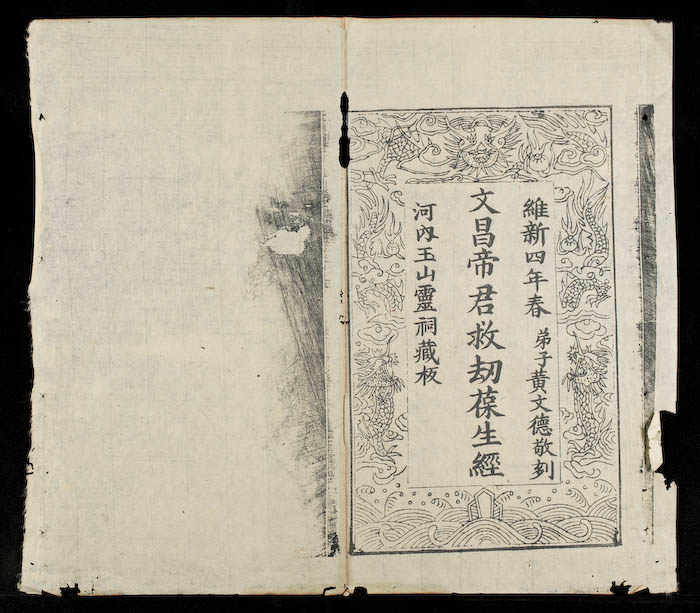 維新四年春 弟子黃文德敬刻
文昌帝君救刼葆生經
河內玉山靈祠藏板